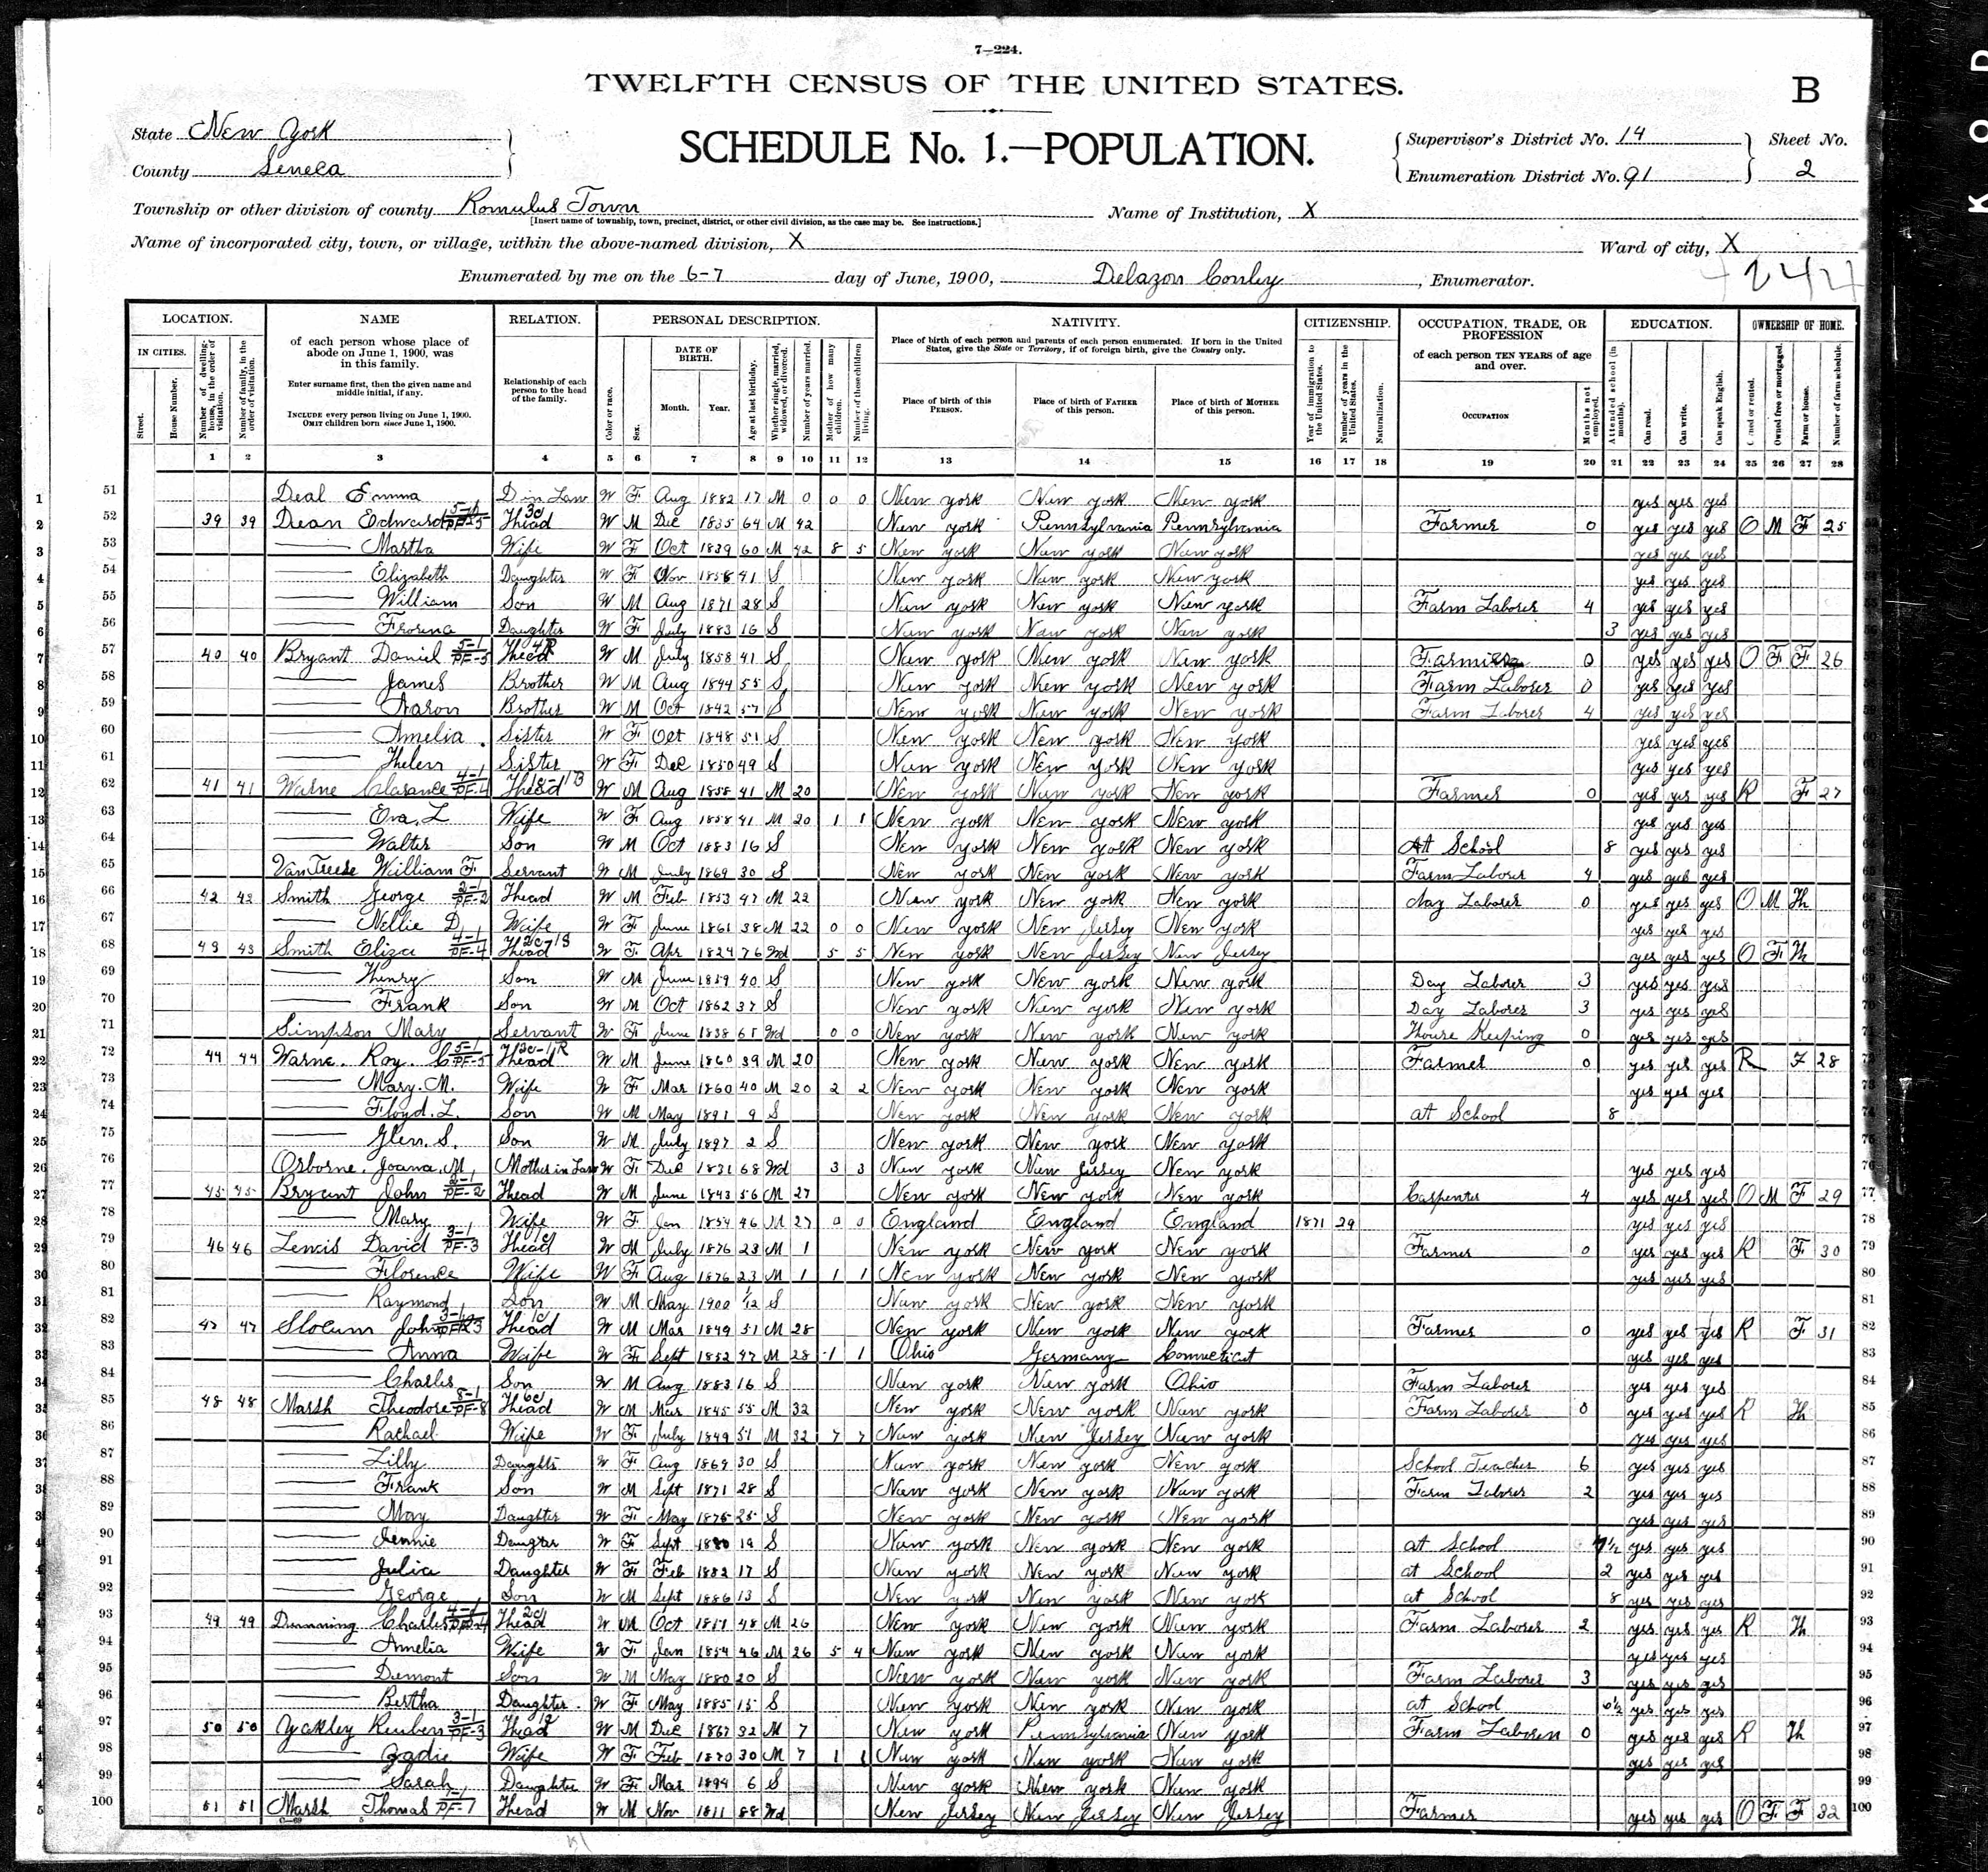 7—224.
TWELFTH CENSUS OF THE UNITED STATES.
B
State New York
County Seneca
SCHEDULE No. 1.—POPULATION.
Supervisor's District No. 14
Enumeration District No. 91
Sheet No.
2
Township or other division of county Romulus Town
[Insert name of township, town, precinct, district, or other civil division, as the case may be. See instructions.]
Name of Institution, X
Name of incorporated city, town, or village, within the above-named division, X
Ward of city, X
Enumerated by me on the 6-7 day of June, 1900, Delazon Conley, Enumerator.
LOCATION. NAME RELATION. PERSONAL DESCRIPTION. NATIVITY. CITIZENSHIP. OCCUPATION, TRADE, OR PROFESSION EDUCATION. OWNERSHIP OF HOME.
IN CITIES. Street. House Number.
Number of dwelling-house, in the order of visitation.
Number of family, in the order of visitation.
of each person whose place of abode on June 1, 1900, was in this family.
Enter surname first, then the given name and middle initial, if any.
INCLUDE every person living on June 1, 1900. OMIT children born since June 1, 1900.
Relationship of each person to the head of the family.
Color or race. Sex. DATE OF BIRTH. Month. Year. Age at last birthday. Whether single, married, widowed, or divorced. Number of years married. Mother of how many children. Number of these children living.
Place of birth of each person and parents of each person enumerated. If born in the United States, give the State or Territory, if of foreign birth, give the Country only.
Place of birth of this PERSON. Place of birth of FATHER of this person. Place of birth of MOTHER of this person.
Year of immigration to the United States. Number of years in the United States. Naturalization.
of each person TEN YEARS of age and over.
OCCUPATION Months not employed.
Attended school (in months). Can read. Can write. Can speak English.
Owned or rented. Owned free or mortgaged. Farm or house. Number of farm schedule.
1 2 3 4 5 6 7 8 9 10 11 12 13 14 15 16 17 18 19 20 21 22 23 24 25 26 27 28
51 Deal Emma D in Law W F Aug 1882 17 M 0 0 0 New York New York New York yes yes yes
52 39 39 Dean Edward Head W M Dec 1835 64 M 42 New York Pennsylvania Pennsylvania Farmer 0 yes yes yes O M F 25
53 Martha Wife W F Oct 1839 60 M 42 8 5 New York New York New York yes yes yes
54 Elizabeth Daughter W F Nov 1858 41 S New York New York New York yes yes yes
55 William Son W M Aug 1871 28 S New York New York New York Farm Laborer 4 yes yes yes
56 Daughter W F July 1883 16 S New York New York New York 3 yes yes yes
57 40 40 Bryant Daniel Head W M July 1858 41 S New York New York New York 0 yes yes yes O F F 26
58 James Brother W M Aug 1844 55 S New York New York New York Farm Laborer 0 yes yes yes
59 Aaron Brother W M Oct 1842 57 S New York New York New York Farm Laborer 4 yes yes yes
60 Amelia Sister W F Oct 1848 51 S New York New York New York yes yes yes
61 Helen Sister W F Dec 1850 49 S New York New York New York yes yes yes
62 41 41 Warne Clarance Head W M Aug 1858 41 M 20 New York New York New York Farmer 0 yes yes yes R F 27
63 Eva. L Wife W F Aug 1858 41 M 20 1 1 New York New York New York yes yes yes
64 Walter Son W M Oct 1883 16 S New York New York New York At School 8 yes yes yes
65 William F. Servant W M July 1869 30 S New York New York New York Farm Laborer 4 yes yes yes
66 42 42 Smith George Head W M Feb 1853 47 M 22 New York New York New York Day Laborer 0 yes yes yes O M H
67 Nellie D Wife W F June 1861 38 M 22 0 0 New York New Jersey New York yes yes yes
68 43 43 Smith Eliza Head W F Apr 1824 76 Wd 5 5 New York New Jersey New Jersey yes yes yes O F H
69 Henry Son W M June 1859 40 S New York New York New York Day Laborer 3 yes yes yes
70 Frank Son W M Oct 1862 37 S New York New York New York Day Laborer 3 yes yes yes
71 Simpson Mary Servant W F June 1838 61 Wd 0 0 New York New York New York House Keeping 0 yes yes yes
72 44 44 Warne. Roy. C Head W M June 1860 39 M 20 New York New York New York Farmer 0 yes yes yes R F 28
73 Mary. M. Wife W F Mar 1860 40 M 20 2 2 New York New York New York yes yes yes
74 Floyd. L. Son W M May 1891 9 S New York New York New York at School 8
75 Glen. S. Son W M July 1897 2 S New York New York New York
76 Osborne. Joana. M. Mother in Law W F Dec 1831 68 Wd 3 3 New York New Jersey New York yes yes yes
77 45 45 Bryant John Head W M June 1843 56 M 27 New York New York New York Carpenter 4 yes yes yes O M F 29
78 Mary Wife W F Jan 1854 46 M 27 0 0 England England England 1871 29 yes yes yes
79 46 46 Lewis David Head W M July 1876 23 M 1 New York New York New York Farmer 0 yes yes yes R F 30
80 Florence Wife W F Aug 1876 23 M 1 1 1 New York New York New York yes yes yes
81 Raymond Son W M May 1900 1/12 S New York New York New York
82 47 47 Slocum John Head W M Mar 1849 51 M 28 New York New York New York Farmer 0 yes yes yes R F 31
83 Anna Wife W F Sept 1852 47 M 28 1 1 Ohio Germany Connecticut yes yes yes
84 Charles Son W M Aug 1883 16 S New York New York Ohio Farm Laborer yes yes yes
85 48 48 Marsh Theodore Head W M Mar 1845 55 M 32 New York New York New York Farm Laborer 0 yes yes yes R H
86 Rachael Wife W F July 1849 51 M 32 7 7 New York New Jersey New York yes yes yes
87 Lilly Daughter W F Aug 1869 30 S New York New York New York School Teacher 6 yes yes yes
88 Frank Son W M Sept 1871 28 S New York New York New York Farm Laborer 2 yes yes yes
89 May Daughter W F May 1875 25 S New York New York New York yes yes yes
90 Jennie W F Sept 1880 19 S New York New York New York at School yes yes yes
91 Julia Daughter W F Feb 1882 17 S New York New York New York at School 2 yes yes yes
92 George Son W M Sept 1886 13 S New York New York New York at School 8 yes yes yes
93 49 49 Dunning Charles Head W M Oct 1851 48 M 26 New York New York New York Farm Laborer 2 yes yes yes R H
94 Amelia Wife W F Jan 1854 46 M 26 5 4 New York New York New York yes yes yes
95 Dumont Son W M May 1880 20 S New York New York New York Farm Laborer 3 yes yes yes
96 Bertha Daughter W F May 1885 15 S New York New York New York at School 6½ yes yes yes
97 50 50 Yakley Reuben Head W M Dec 1867 32 M 7 New York Pennsylvania New York Farm Laborer 0 yes yes yes R H
98 Zadie Wife W F Feb 1870 30 M 7 1 1 New York New York New York yes yes yes
99 Sarah Daughter W F Mar 1894 6 S New York New York New York
100 51 51 Marsh Thomas Head W M Nov 1811 88 Wd New Jersey New Jersey New Jersey Farmer yes yes yes O F F 32